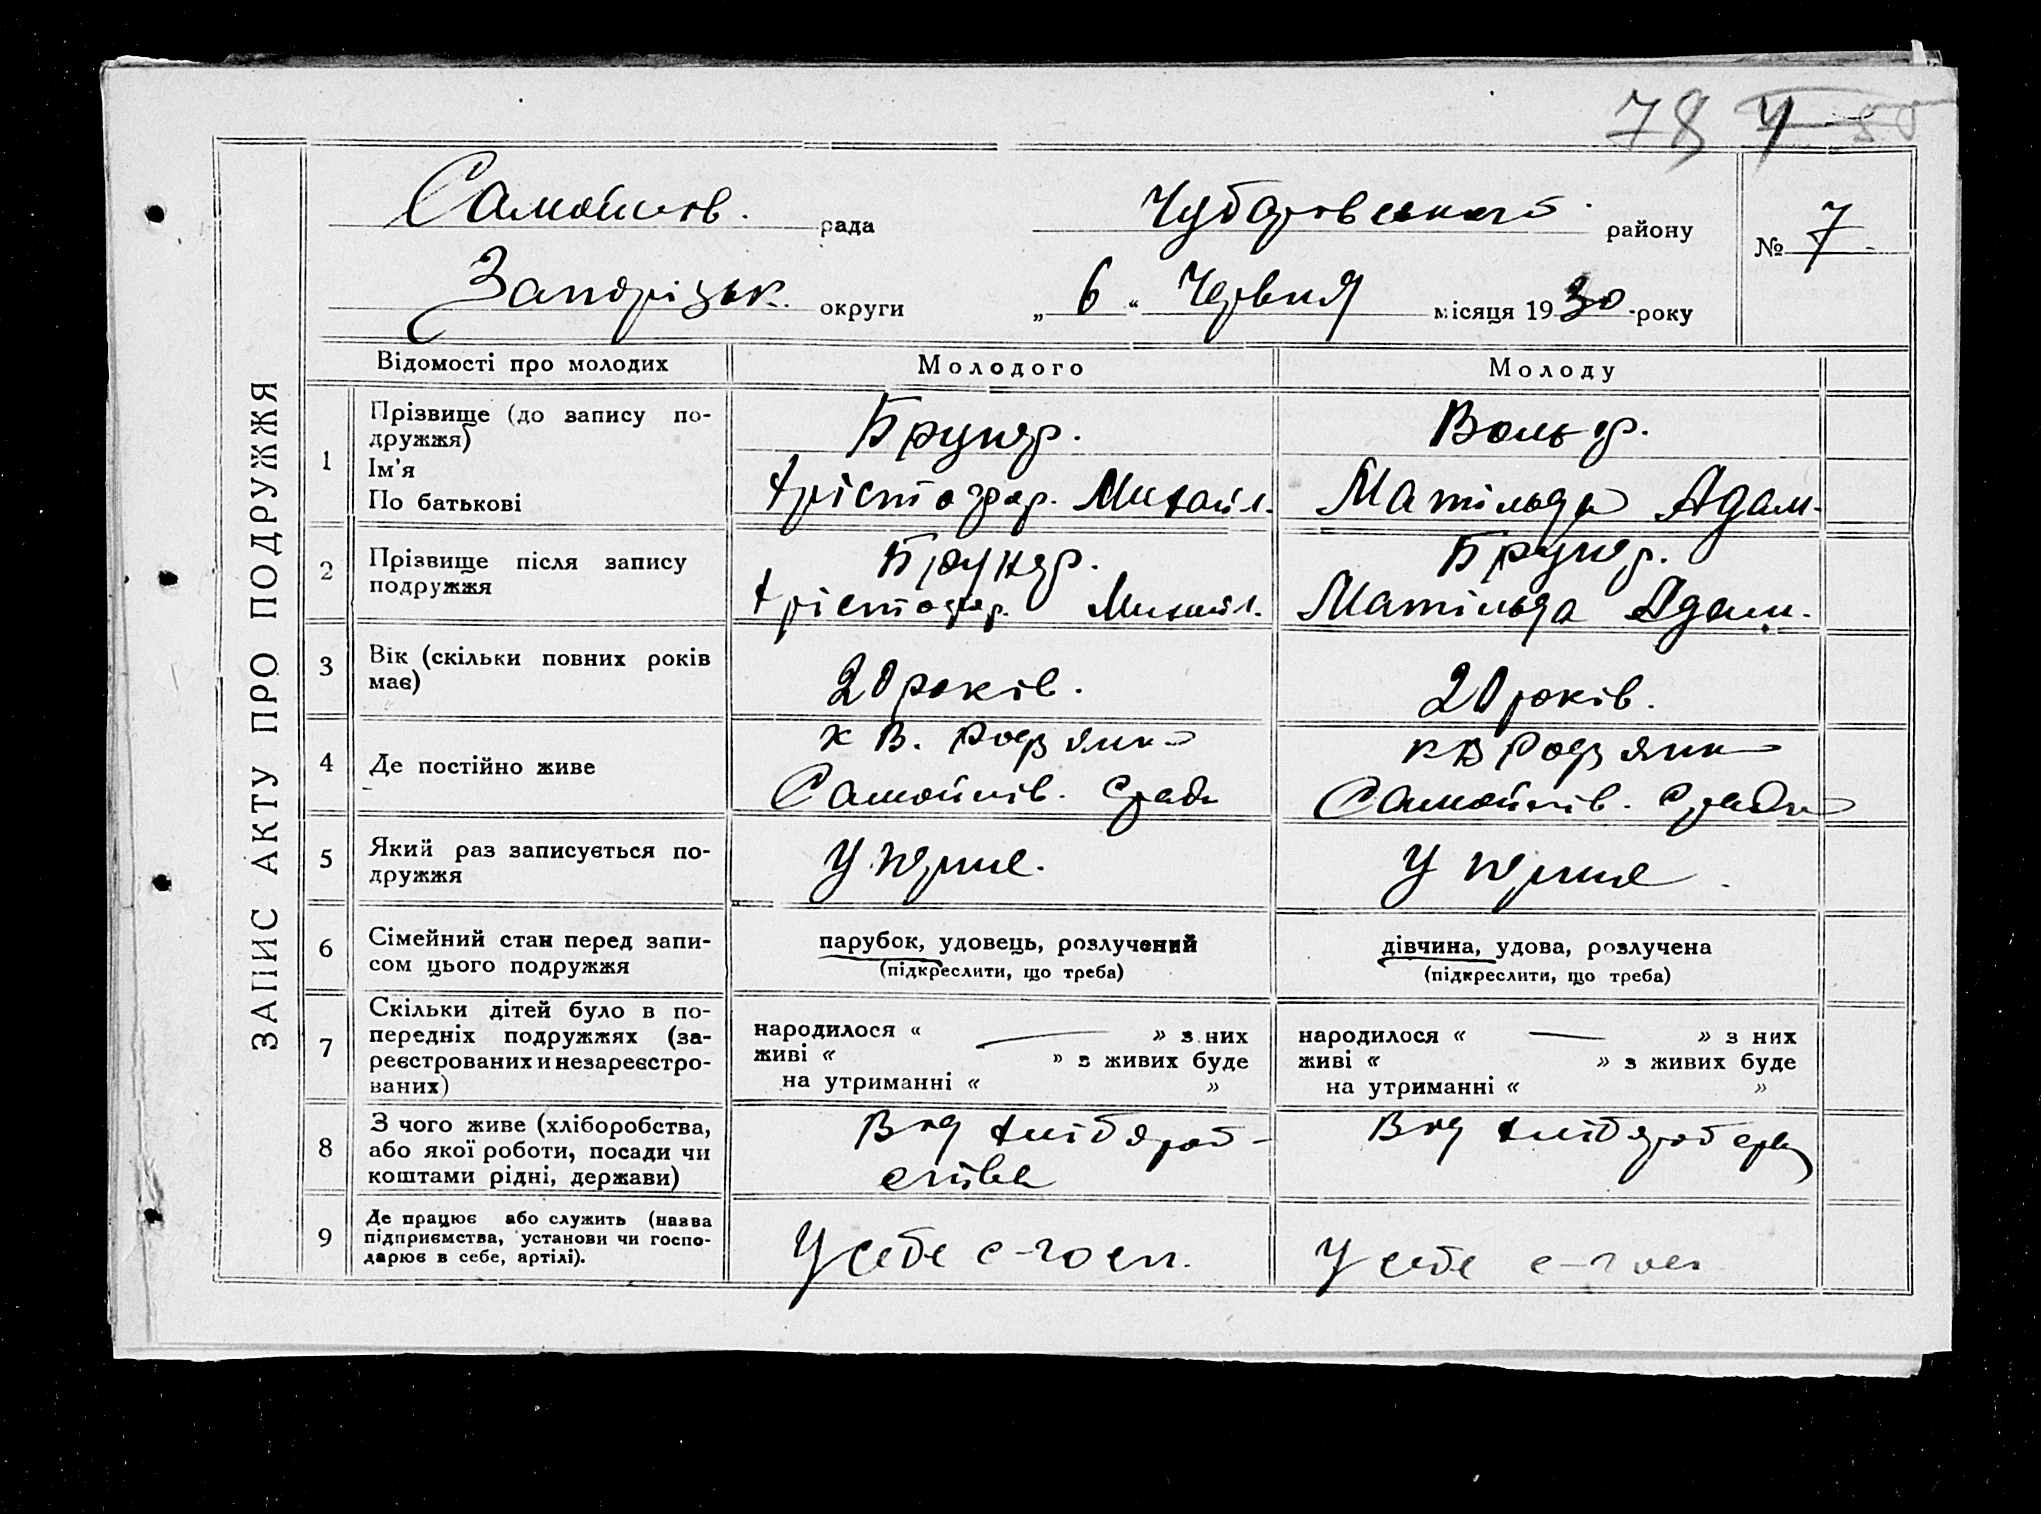 78
Самойлов. рада Чубарівського району № 7
Запоріцьк. округи „ 6 “ Червня місяця 1930 року
ЗАПИС АКТУ ПРО ПОДРУЖЖЯ
Відомості про молодих Молодого Молоду
1 Прізвище (до запису по-
дружжя)
Брунер. Вольф.
Ім'я
По батькові
Хрістофор. Михайл. Матільда Адам.
2 Прізвище після запису
подружжя
Брунер. Брунер.
Хрістофор. Михайл. Матільда Адам.
3 Вік (скільки повних років
має)
20 років. 20 років.
4 Де постійно живе
к В. Родзянко к В Родзянко
Самойлів. с/рада Самойлів. с/рада
5 Який раз записується по-
дружжя
У перше. У перше
6 Сімейний стан перед запи-
сом цього подружжя
парубок, удовець, розлучений дівчина, удова, розлучена
(підкреслити, що треба) (підкреслити, що треба)
7 Скільки дітей було в по-
передніх подружжях (за-
реєстрованих и незареєстро-
ваних)
народилося “ — ” з них народилося “ — ” з них
живі “ ” з живих буде живі “ ” з живих буде
на утриманні “ ” на утриманні “ ”
8 З чого живе (хліборобства,
або якої роботи, посади чи
коштами рідні, держави)
Від хлібороб-
ства
9 Де працює або служить (назва
підприємства, установи чи госпо-
дарює в себе, артілі).
У себе с-госп. У себе с-госп